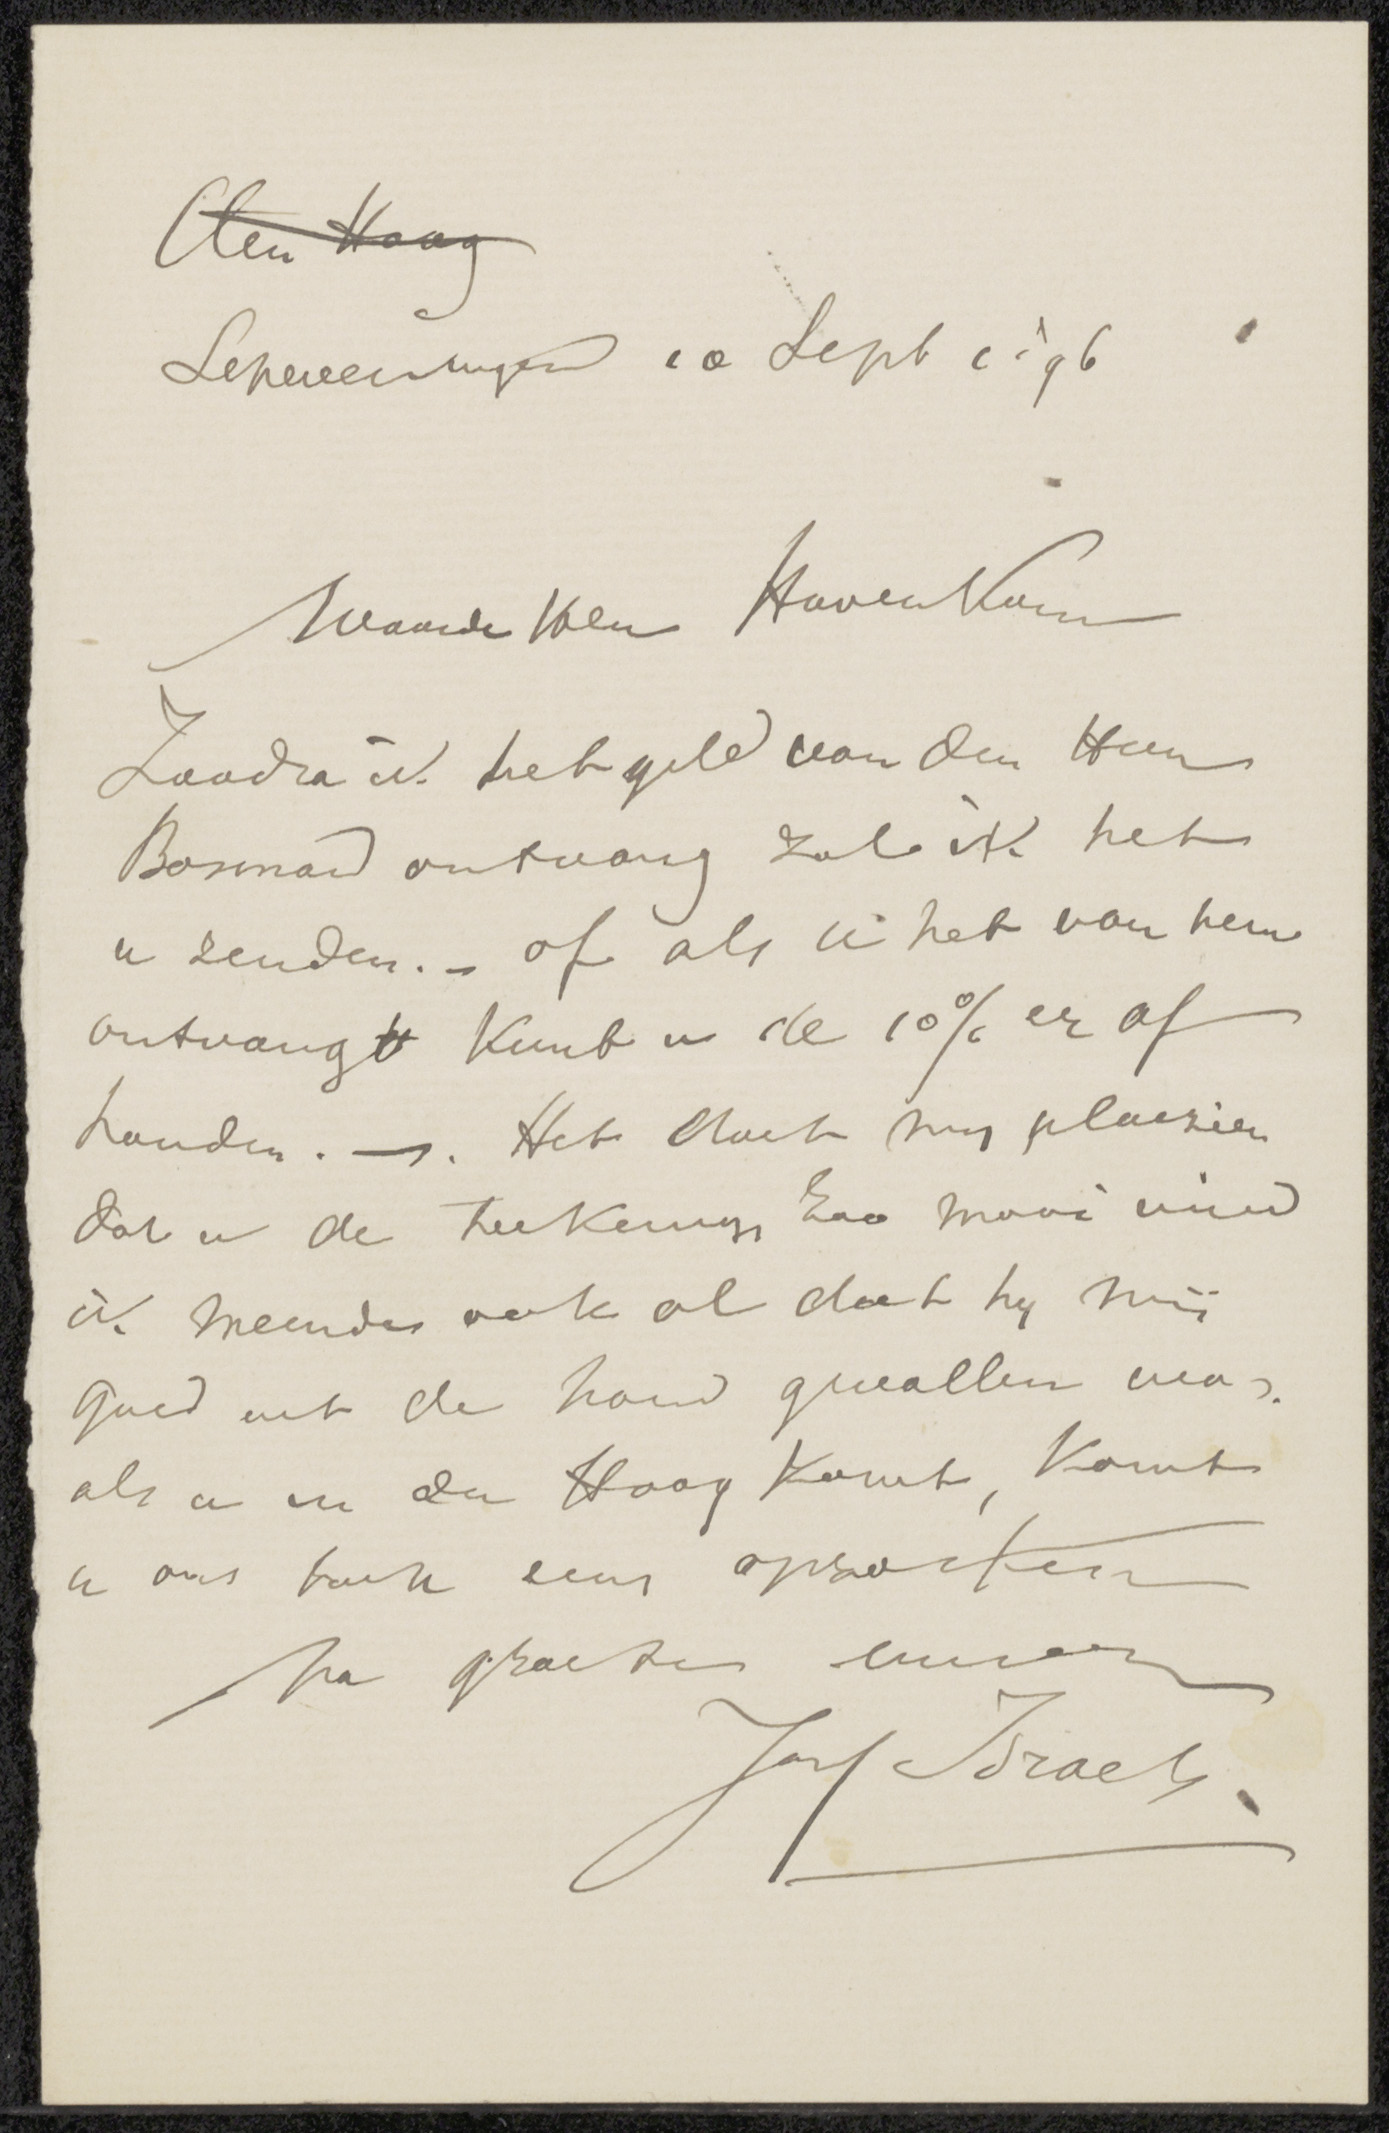 Den Haag
Scheveningen 10 Sept 1896
Waarde Heer Havenkorn
Zoodra ik het geld van den Heer
Bosman ontvang zal ik het
u zenden. – of als U het van hem
ontvangt kunt u de 10% er af
houden. –. Het doet my plaizier
dat u de teekening zoo mooi vind
ik meende ook al dat hy mij
goed uit de hand gevallen was.
als u in den Haag komt, komt
u ons toch eens opzoeken
na groeten
Jozef Israels.